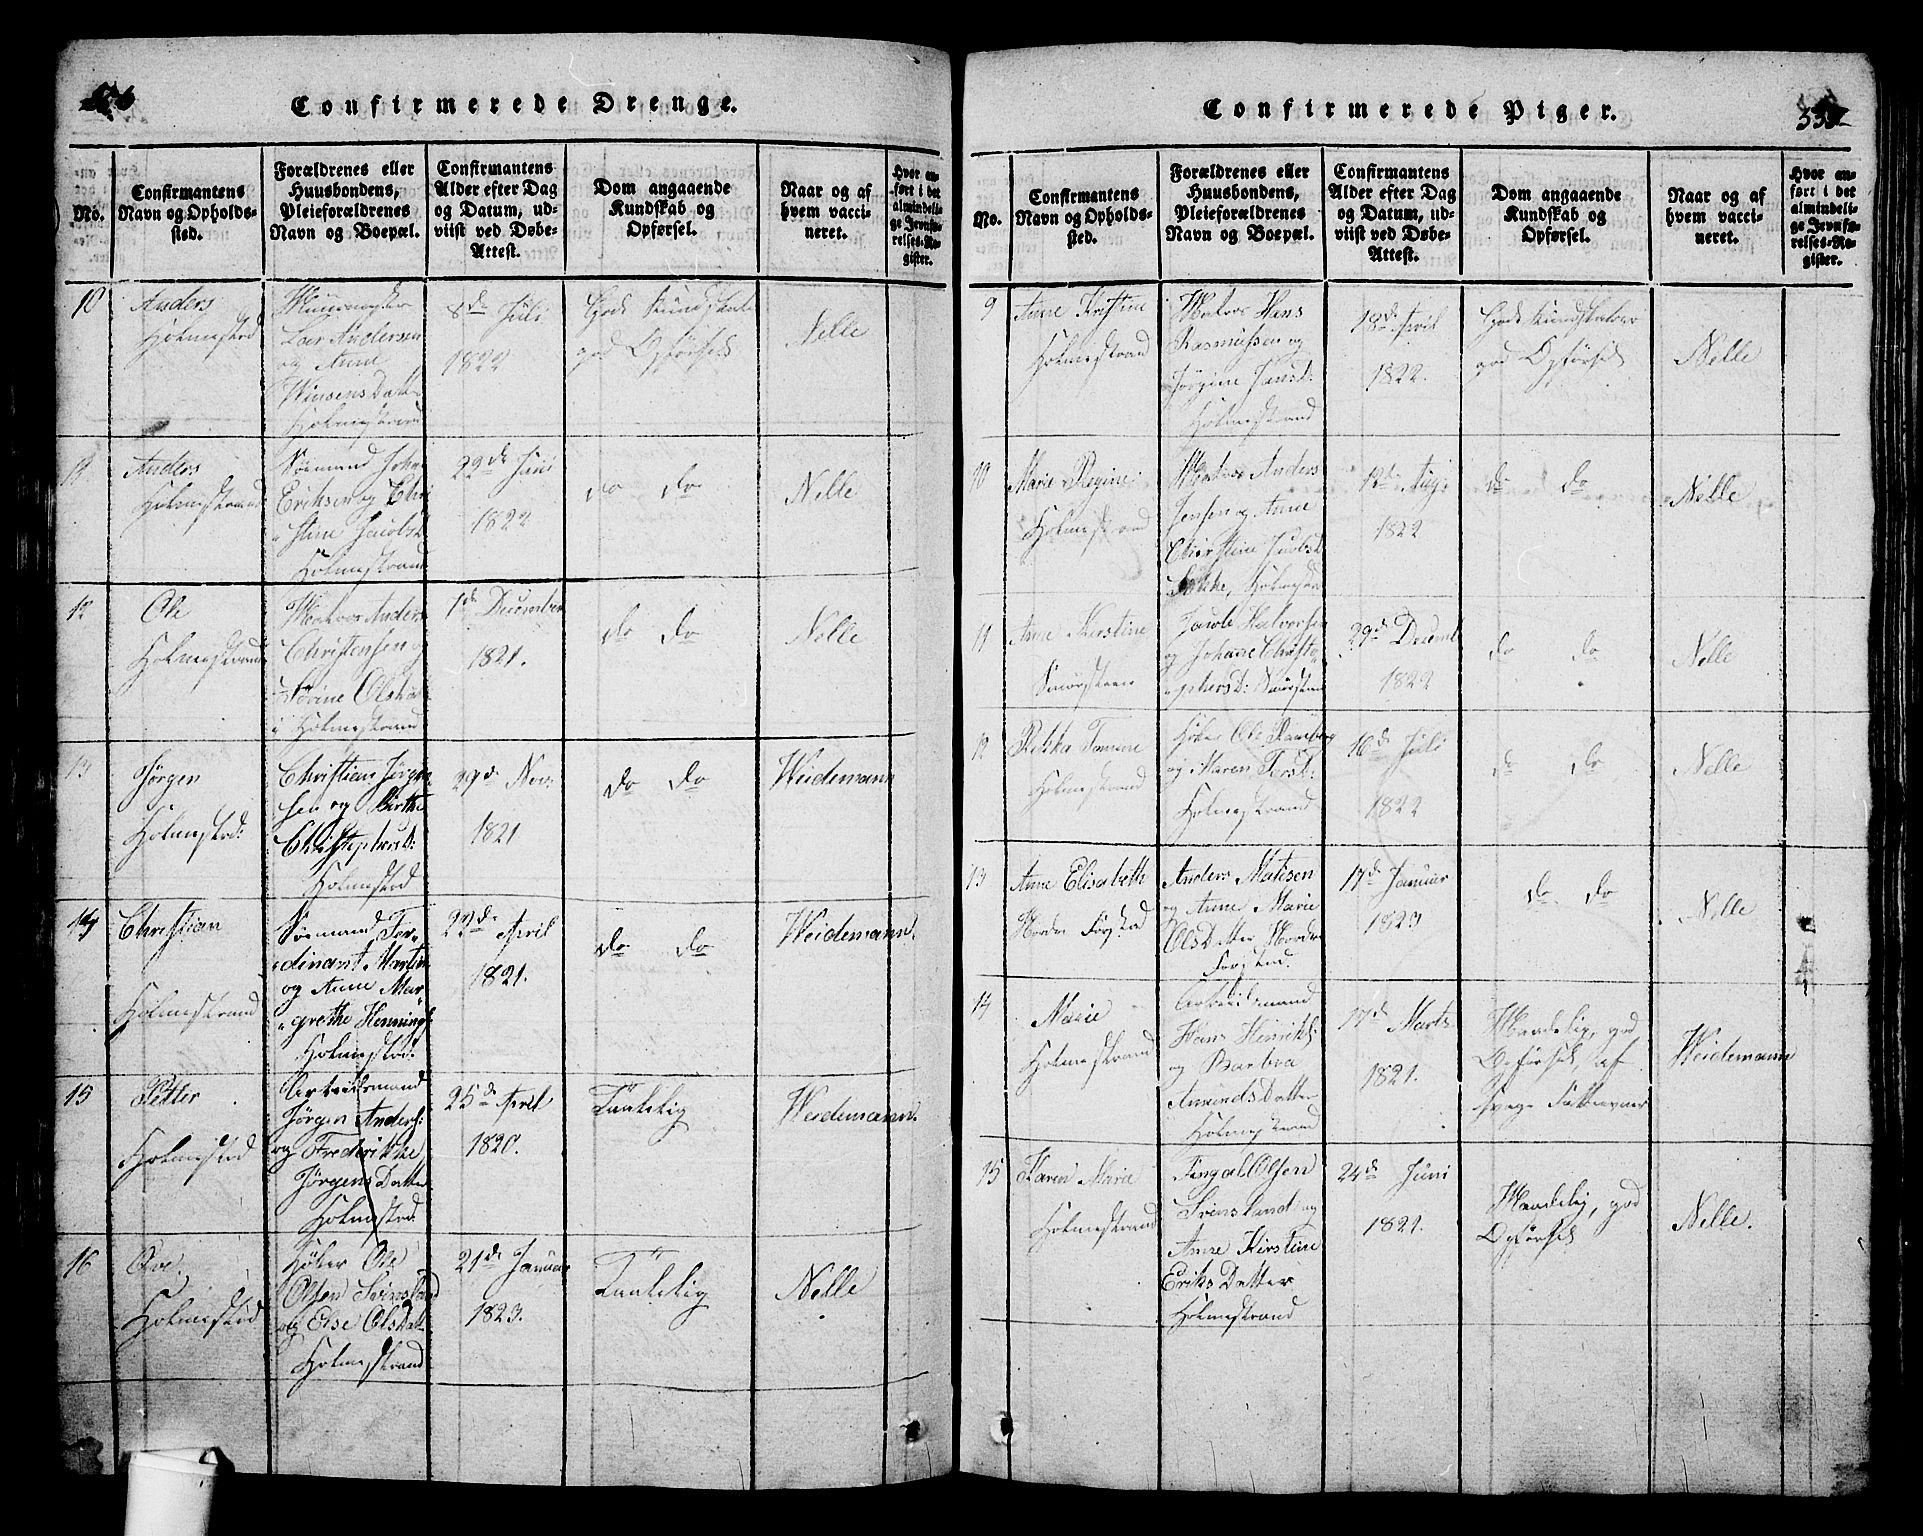 Confirmerede Drenge.
No.
Confirmantens Navn og Opholds-sted.
Forældrenes eller Huusbondens, Pleieforældrenes Navn og Boepæl.
Confirmantens Alder efter Dag og Datum, ud-viist ved Døbe-Attest.
Dom angaaende Kundskab og Opførsel.
Naar og af hvem vacci-neret.
Hvor an-ført i det almindeli-ge Jevnfø-relses-Re-gister.
10 Anders
Holmestrd
Lars Andersen
og Anne
Holmestrand
8de Juli
1822
Gode Kundskaber
god Opførsel
Nelle
11 Anders
Holmestrand
Sømand Johan
Eriksen og Chri
stine Jacobsd
Holmestrand
22de Juni
1822
do do
Nelle
12 Ole
Holmestrand
Matros Anders
Christensen og
Holmestrand
1de December
1821.
do do
Nelle
13 Jørgen
Holmestrd:
Christian Jørgen
sen og Birthe
Christophersd:
Holmestrd
29de Nov:
1821
do do
Weidemann
14 Christian
Holmestrand
Sømand Fer
dinant Martin
og Anne Mar
grethe Hennings
Holmestrd:
22de April
1821.
do do
Weidemann.
15 Petter
Holmestrd
Arbeidsmand
Jørgen Anders:
og Frederikke
Jørgens Datter
Holmestrd:
25de April
1820.
Taalelig
Weidemann.
16
Holmestrd
Høker Ole
Olsen Svinsland
og Else Olsdatt
Holmestrand
21de Januar
1823.
Taalelig
Nelle
Confirmerede Piger.
No.
Confirmantens Navn og Opholds-sted.
Forældrenes eller Huusbondens, Pleieforældrenes Navn og Boepæl.
Confirmantens Alder efter Dag og Datum, ud-viist ved Døbe-Attest.
Dom angaaende Kundskab og Opførsel.
Naar og af hvem vacci-neret.
Hvor an-ført i det almindeli-ge Jevnfø-relses-Re-gister.
9 Anne Kirstine
Holmestrand
Matros Hans
Rasmussen og
Jørgine Jansd:
Holmestrand
18de April
1822.
Gode Kundskaber
god Opførsel
Nelle
10 Marie Regine
Holmestrand
Matros Anders
Jensen og Anne
Christine Jacobsd
12de Aug:
1822
do do
Nelle
11 Anne Kirstine
Smørsteen
Jacob Halvorsen
og Johane Christo
phersd: Smørsteen
29de Decemb
1822
do do
Nelle
12
Holmestrand
Høker Ole Ramberg
og Karen
Holmestrand
16de Juli
1822
do do
Nelle
13 Anne Elisabeth
Anders Matisen
og Anne Marie
Olsdatter
17de Januar
1823
do do
Nelle
14 Marie
Holmestrand
Arbeidsmand
Hans Henriks:
og Barbra
Amunds Datter
Holmestrand
17de Marts
1821.
Maadelig, god
Opførsel, af
svage Fatteevner
Weidemann
15 Karen Marie
Holmestrand
Fingal Olsen
Svinsland og
Anne Kirstine
Eriks Datter
Holmestrand
24de Juni
1821.
Maadelig, god
Opførsel
Nelle.